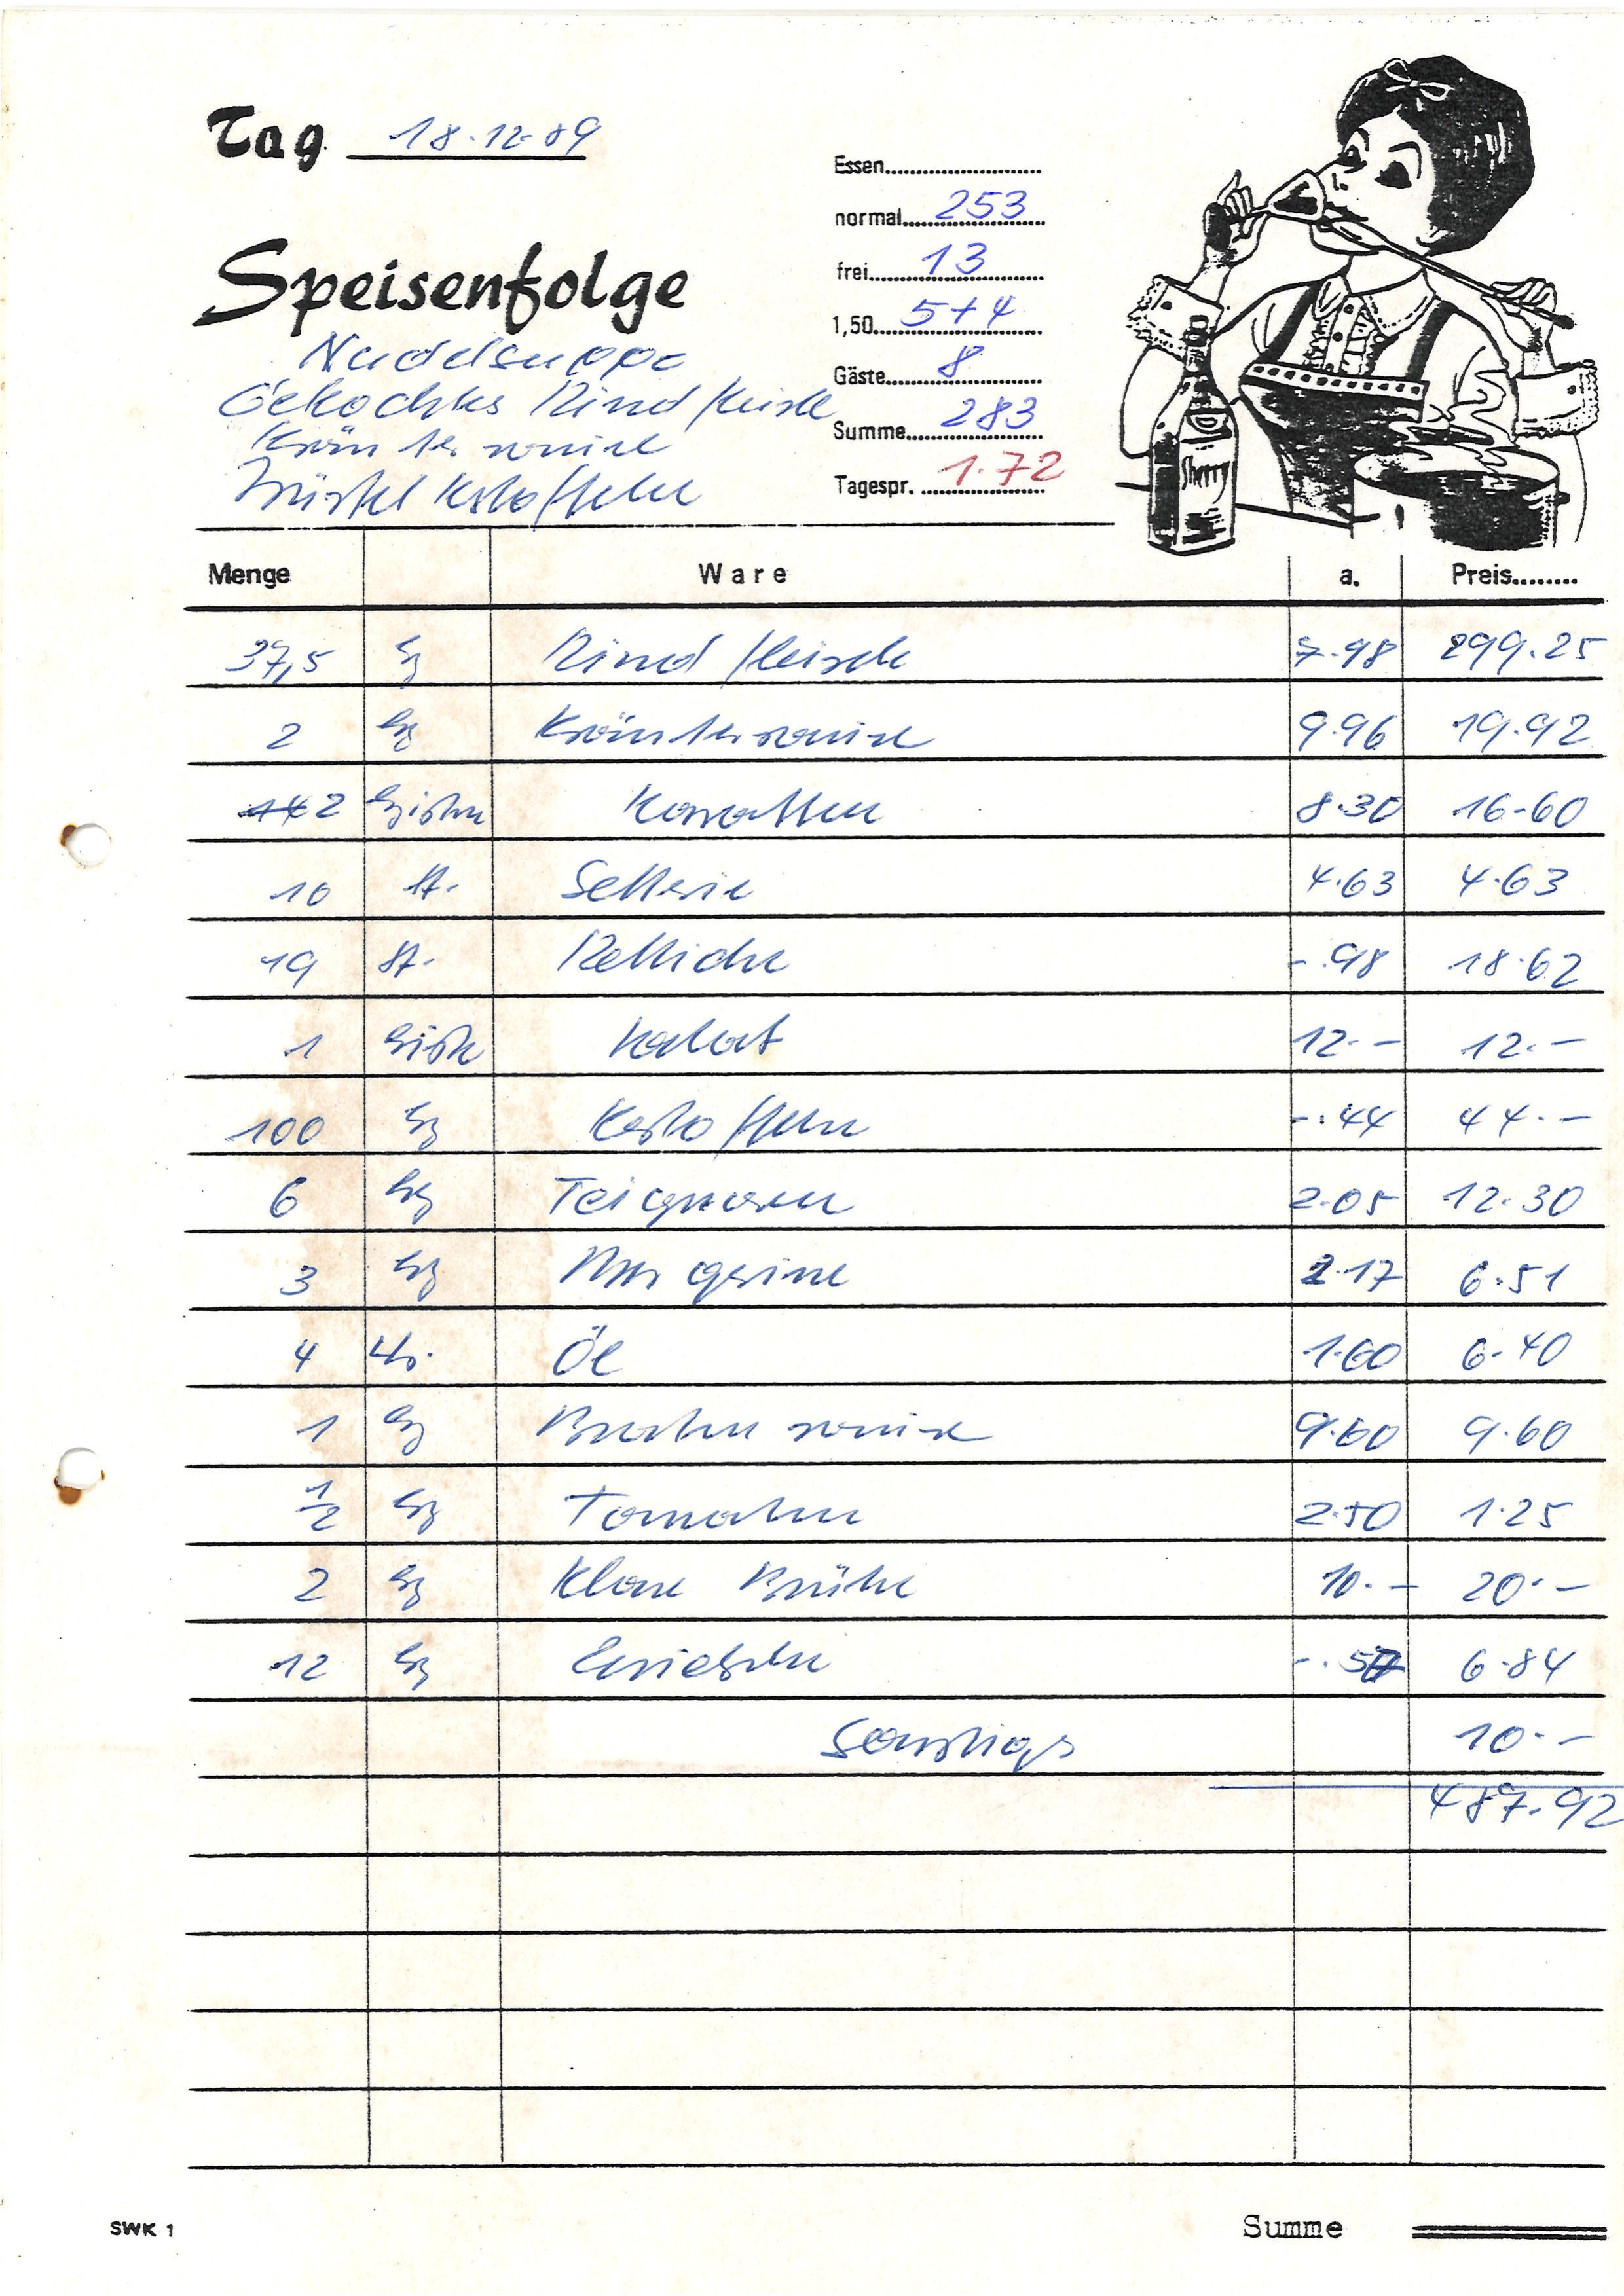 Tag 18.12.89
Essen
normal 253
frei 13
1,50 5+4
Gäste 8
Summe 283
Tagespr. 1.72
Speisenfolge
Nudelsuppe
Gekochtes Rindfleisch
Kräutersauce
Würfelkartoffeln
Sherry
Menge Ware a. Preis
37,5 kg Rindfleisch 7.98 299.25
2 kg Kräutersauce 9.96 19.92
2 Kisten Karotten 8.30 16.60
10 St. Sellerie 4.63 4.63
19 St. Rettiche -.98 18.62
1 Kiste 12.- 12.-
100 kg Kartoffeln -.44 44.-
6 kg Teigwaren 2.05 12.30
3 kg Margarine 2.17 6.51
4 Ltr. Öl 1.60 6.40
1 kg Bratensauce 9.60 9.60
1/2 kg Tomaten 2.50 1.25
2 kg Klare Brühe 10.- 20.-
12 kg Zwiebeln -.57 6.84
Sonstiges 10.-
487.92
SWK 1 Summe